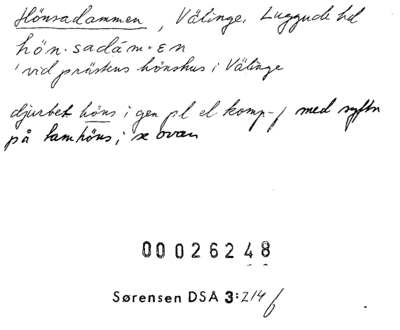 Hönsadammen, Välinge, Luggude hd
hön·sadám·en
'vid prästens hönshus i Välinge
djurbet höns i gen pl el komp-f med syftn
på tamhöns, se ovan
00026248
Sørensen DSA 3:214 f